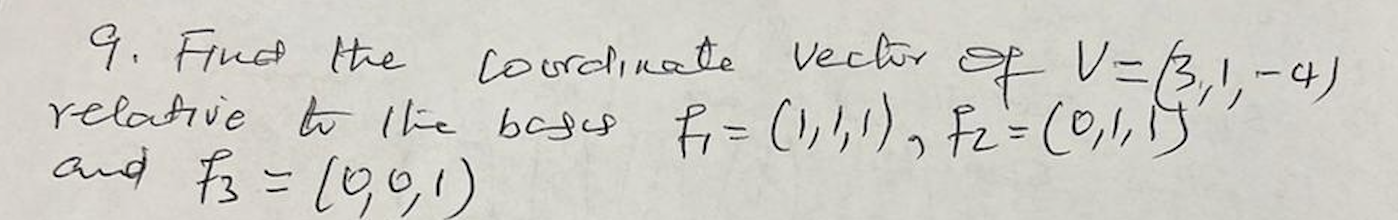 9. Find the coordinate vector of V=(3,1,-4)
relative to the bases f1 = (1,1,1), f2 = (0,1,1)
and f3 = (0,0,1)